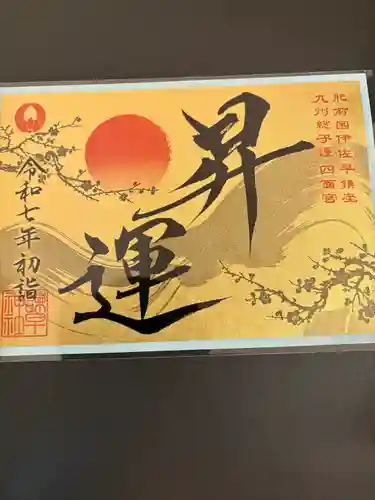 肥前国伊佐早鎮座
九州総守護 四面宮
昇
運
令和七年 初詣
諫早
神社